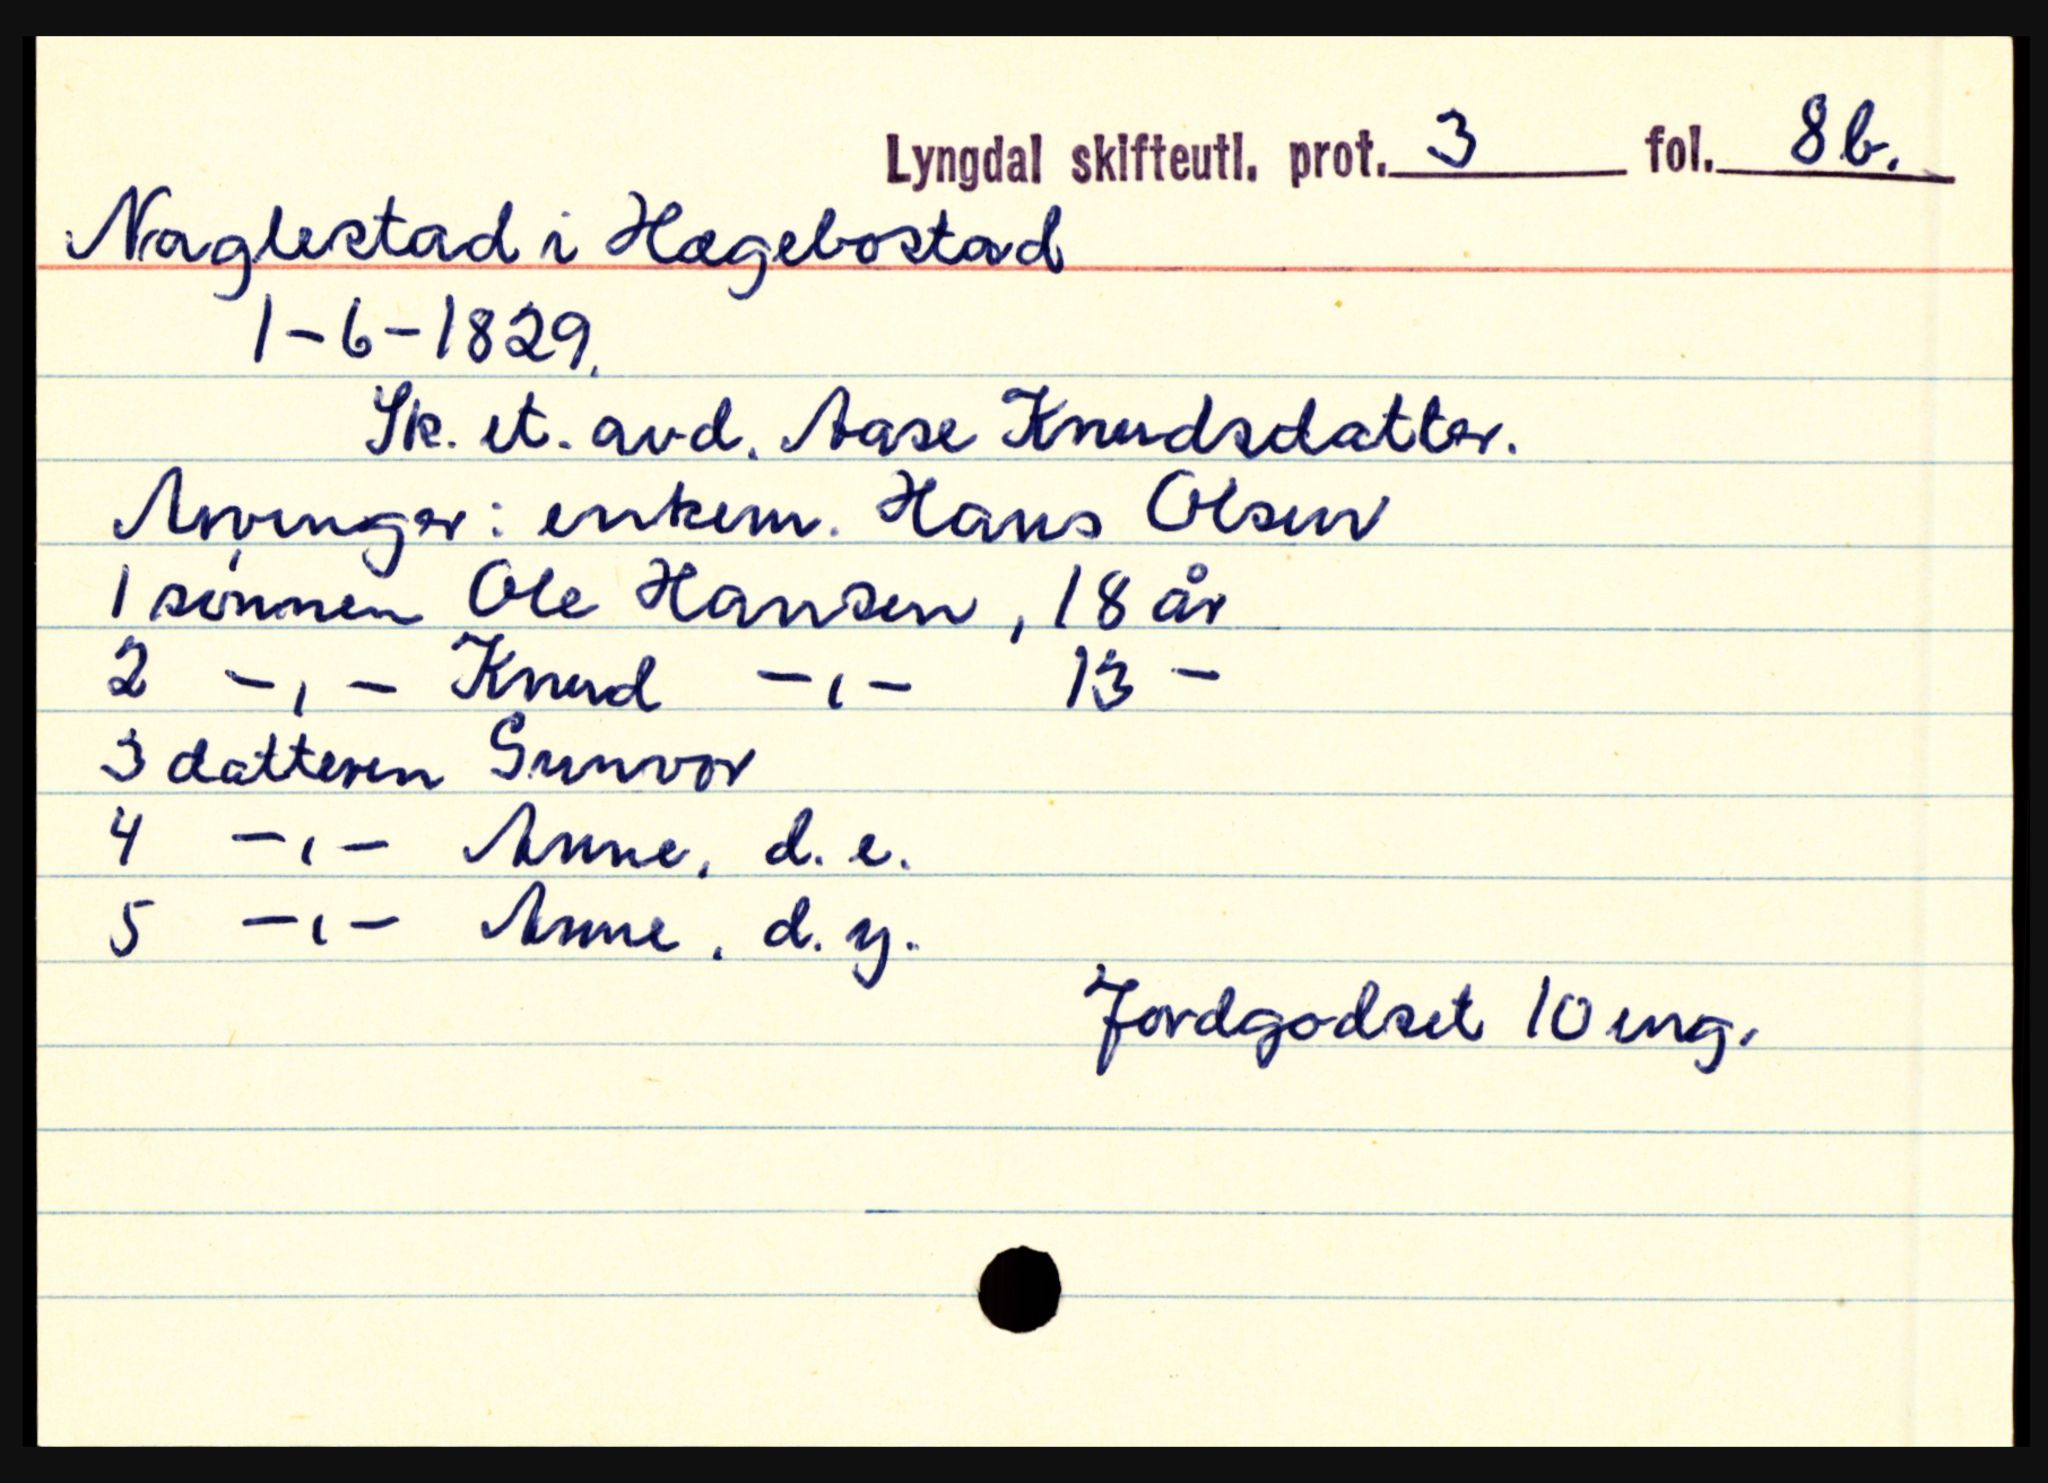 Lyngdal skifteutl. prot. 3 fol. 8b.
Naglestad i Hægebostad
1-6-1829.
Sk. et. avd. Aase Knudsdatter.
Arvinger: enkem. Hans Olsen
1 sønnen Ole Hansen, 18 år
2 -,- Knud -,- 13 -
3 datteren Gunvor
4 -,- Anne, d. e.
5 -,- Anne, d. y.
Jordgodset 10 eng.